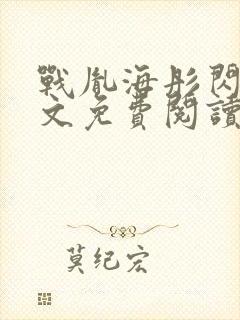 戰胤海彤閃
文免費閱讀
莫纪宏